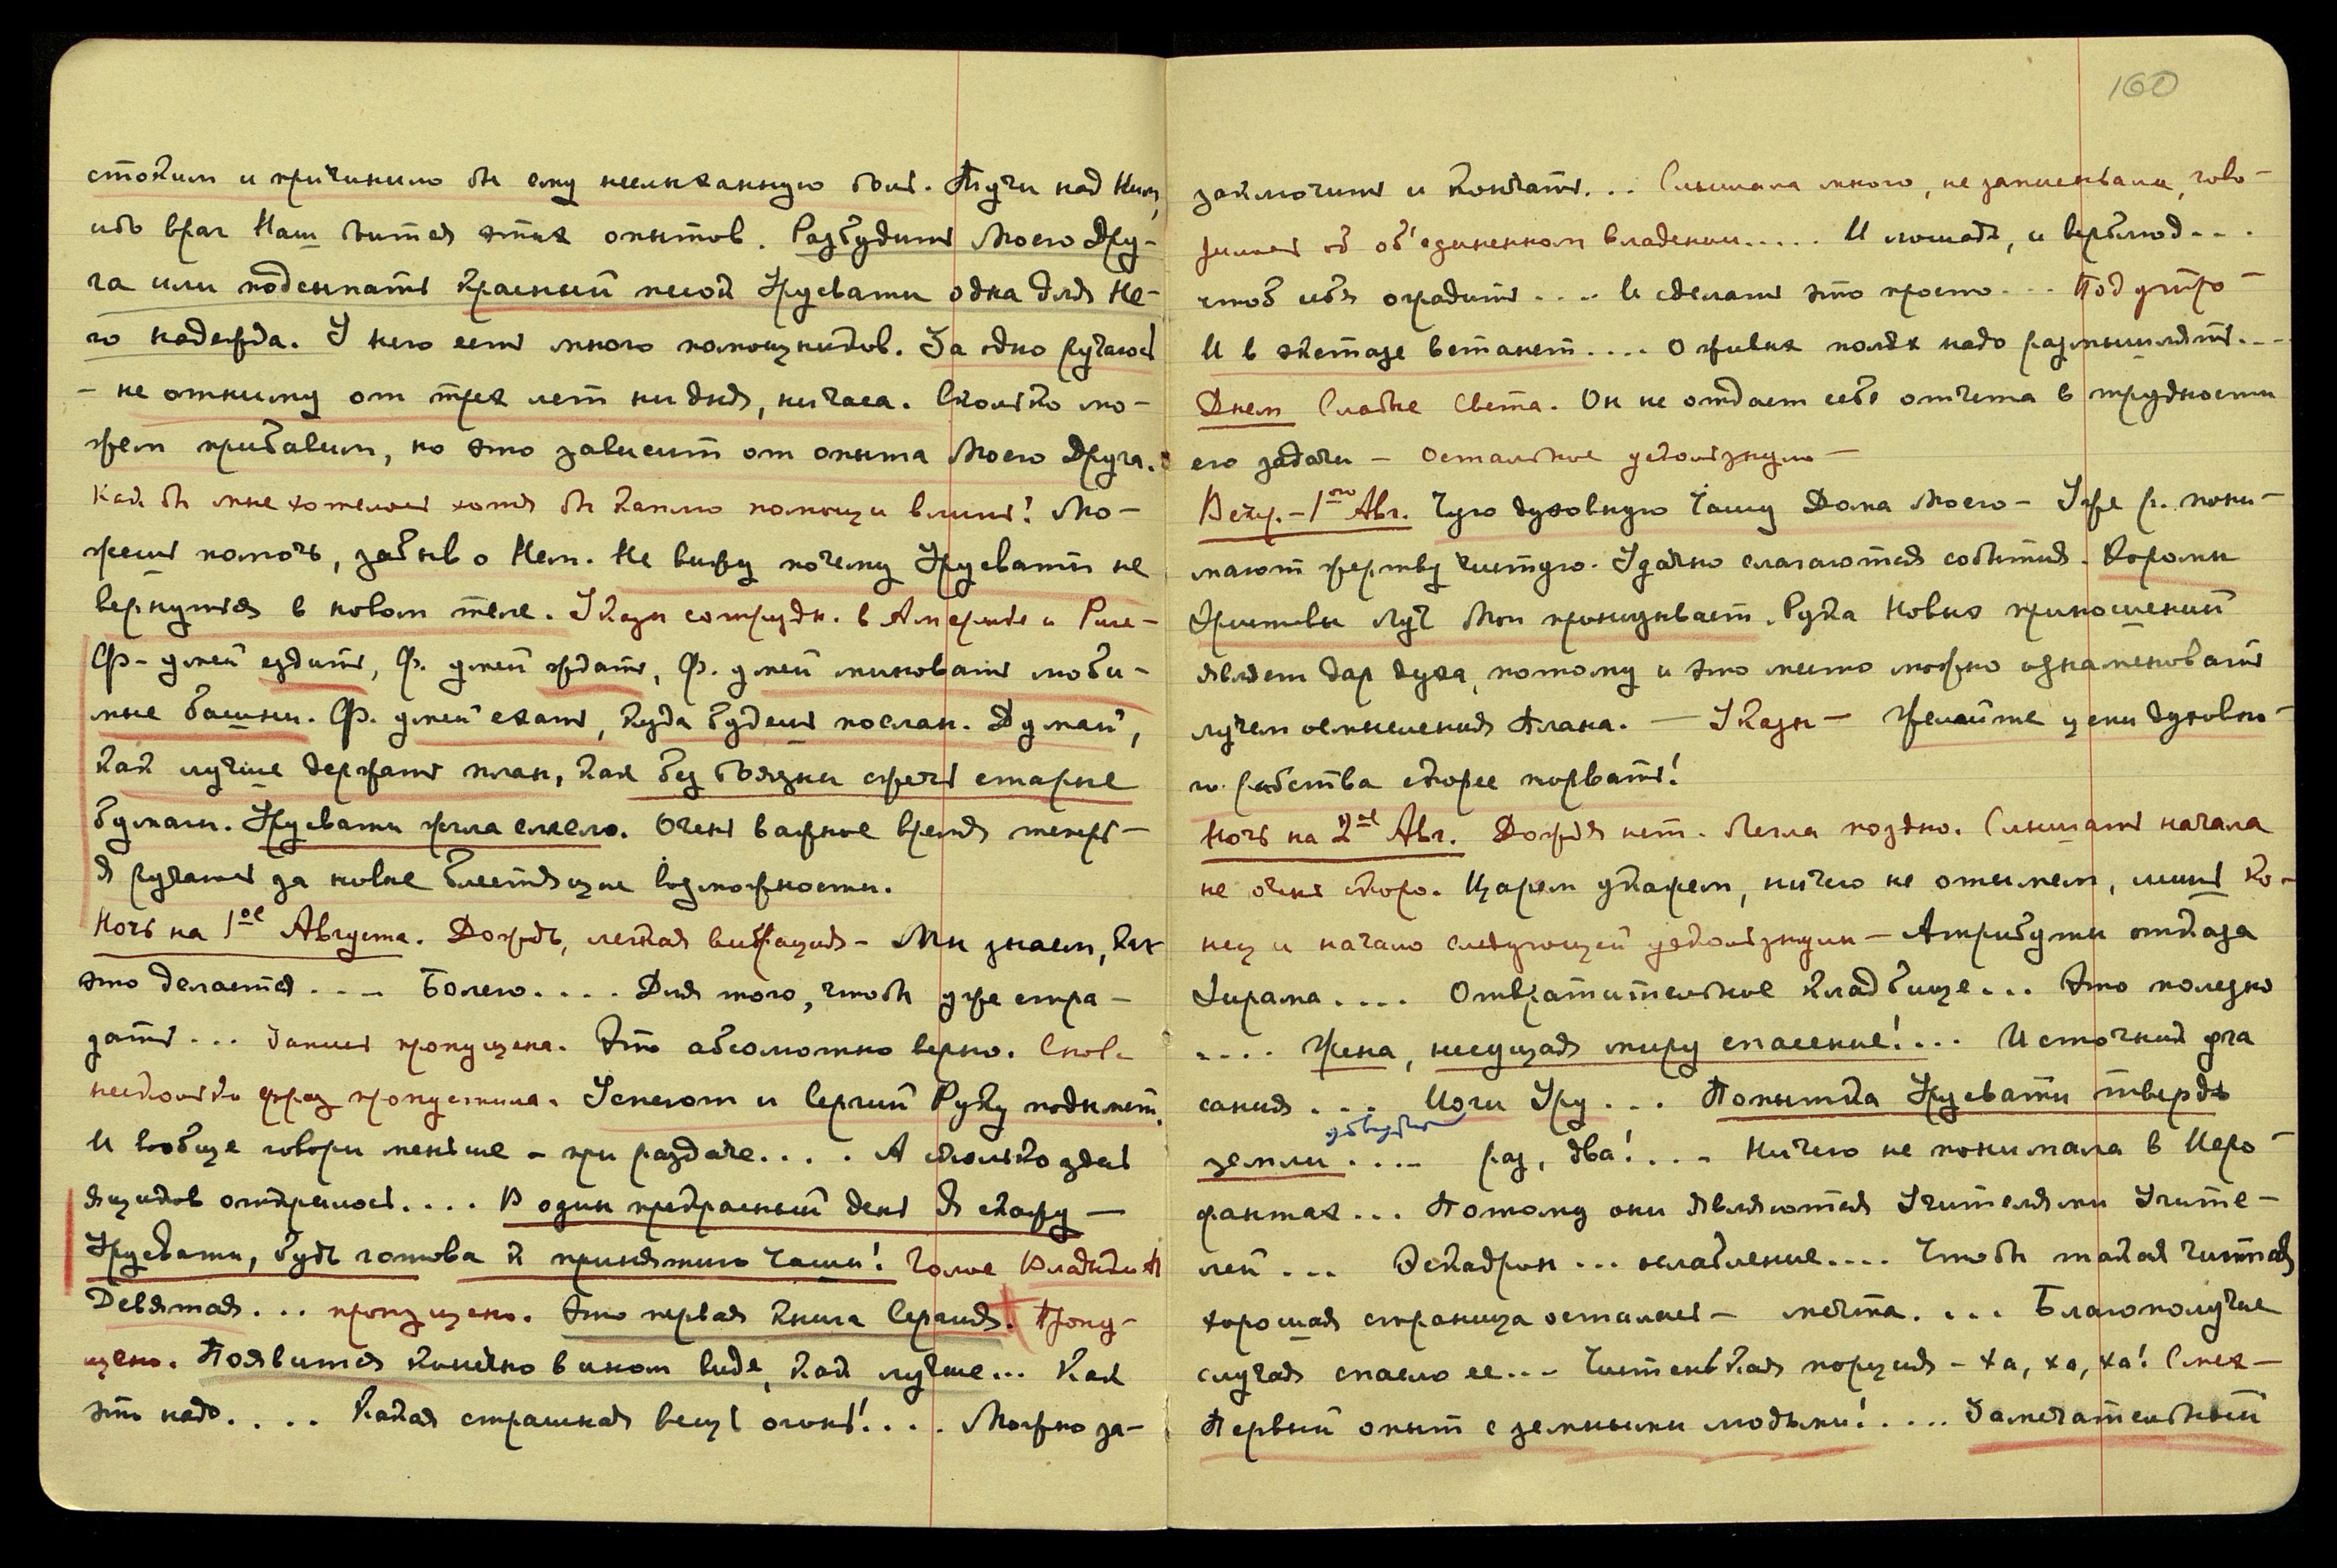 стоким и причинило бы ему неслыханную боль. Тучи над Ним,
ибо враг Наш боится этих опытов. Разбудить Моего Дру-
га или подсыпать красный песок Урусвати одна для Не-
го надежда. У него есть много помощников. За одно ручаюсь
– не отниму от трех лет ни дня, ни часа. Сколько мо-
жем прибавим, но это зависит от опыта Моего Друга.
Как бы мне хотелось хотя бы каплю помощи влить! Мо-
жешь помочь, забыв о Нем. Не вижу почему Урусвати не
вернуться в новом теле. Указы сотрудн. в Америке и Риге –
Ф. – умей ездить, Ф. умей ждать, Ф. умей миновать люби-
мые башни. Ф. умей ехать, куда будешь послан. Думай,
как лучше держать план, как без боязни сжечь старые
бумаги. Урусвати жгла смело. Очень важное время теперь –
Я ручаюсь за новые блестящие возможности.
Ночь на 1ое Августа. Дождь, легкая вибрация – Мы знаем, как
это делается . . . . Болело. . . . Для того, чтобы уже стра –
дать . . . Запись пропущена. Это абсолютно верно. Снова
несколько фраз пропустила. Успеют и Сергий Руку поднимет.
И вообще говори меньше – при раздаче. . . . А сколько здесь
ящиков открылось. . . . В один прекрасный день Я скажу —
Урусвати, будь готова к принятию Чаши! Голос Владыки А
Девятая. . . пропущено. Это первая книга Сергия. Пропу-
щено. Появится конечно в ином виде, как лучше... Как
это надо. . . . Какая страшная вещь огонь!. . . . Можно за-
160
заключить и кончать. . . Слышала много, не записывала, гово-
рилось об об'единенном владении. . . . . И лошадь, и верблюд. . . .
чтоб себя оградить. . . . И сделать это просто. . . Под утро –
И в экстазе встанет. . . . О живых полях надо размышлять. . .
Днем Слабые Света. Он не отдает себе отчета в трудности
его задачи – Остальное ускользнуло —
Вечер. – 1го Авг. Чую духовную Чашу Дома Моего – Уже р. пони-
мают жертву чистую. Удачно слагаются события. Хоромы
Христовы Луч Мой пронизывает. Рука Новых приношений
являет дар духа, потому и это место можно ознаменовать
лучем осмысления Плана. — Указы — Желайте цепи духовно-
го рабства скорее порвать!
Ночь на 2ое Авг. Дождя нет. Легла поздно. Слышать начала
не очень скоро. Царем укажем, ничего не отымем, лишь ко-
нец и начало следующей ускользнули – Атрибуты отказа
Хирама. . . . Отвратительное кладбище. . . Это полезно
. . . . Жена, несущая миру спасение!. . . Источник ужа
сания . . . Йоги Уру . . . Попытка Урусвати твердь
земли . . . . раз, два!. . . . Ничего не понимала в Иеро –
фантах . . . Потому они являются Учителями Учите-
лей . . . Эскадрон . . . ослабление. . . . Чтобы такая чистая
хорошая страница осталась – мечта. . . . Благополучие
случая спасло ее. . . Чистенькая порция – ха, ха, ха! Смех –
Первый опыт с земными людьми!. . . . Замечательный